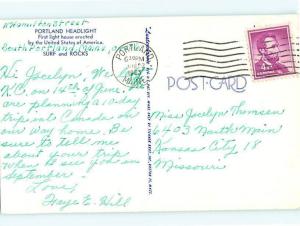 Hamilton Street
PORTLAND HEADLIGHT
First light house erected
by the United States of America.
SURF and ROCKS
South Portland, Maine
Hi Jocelyn, We
K.C. on 14th of June.
are planning a 10 day
trip into Canada on
our way home. Be
sure to tell me
about your trip
when I see you in
September.
Love,
Faye E. Hill
PORTLAND
POST CARD
Miss Jocelyn Thomsen
6403 North Main
Kansas City 18
Missouri